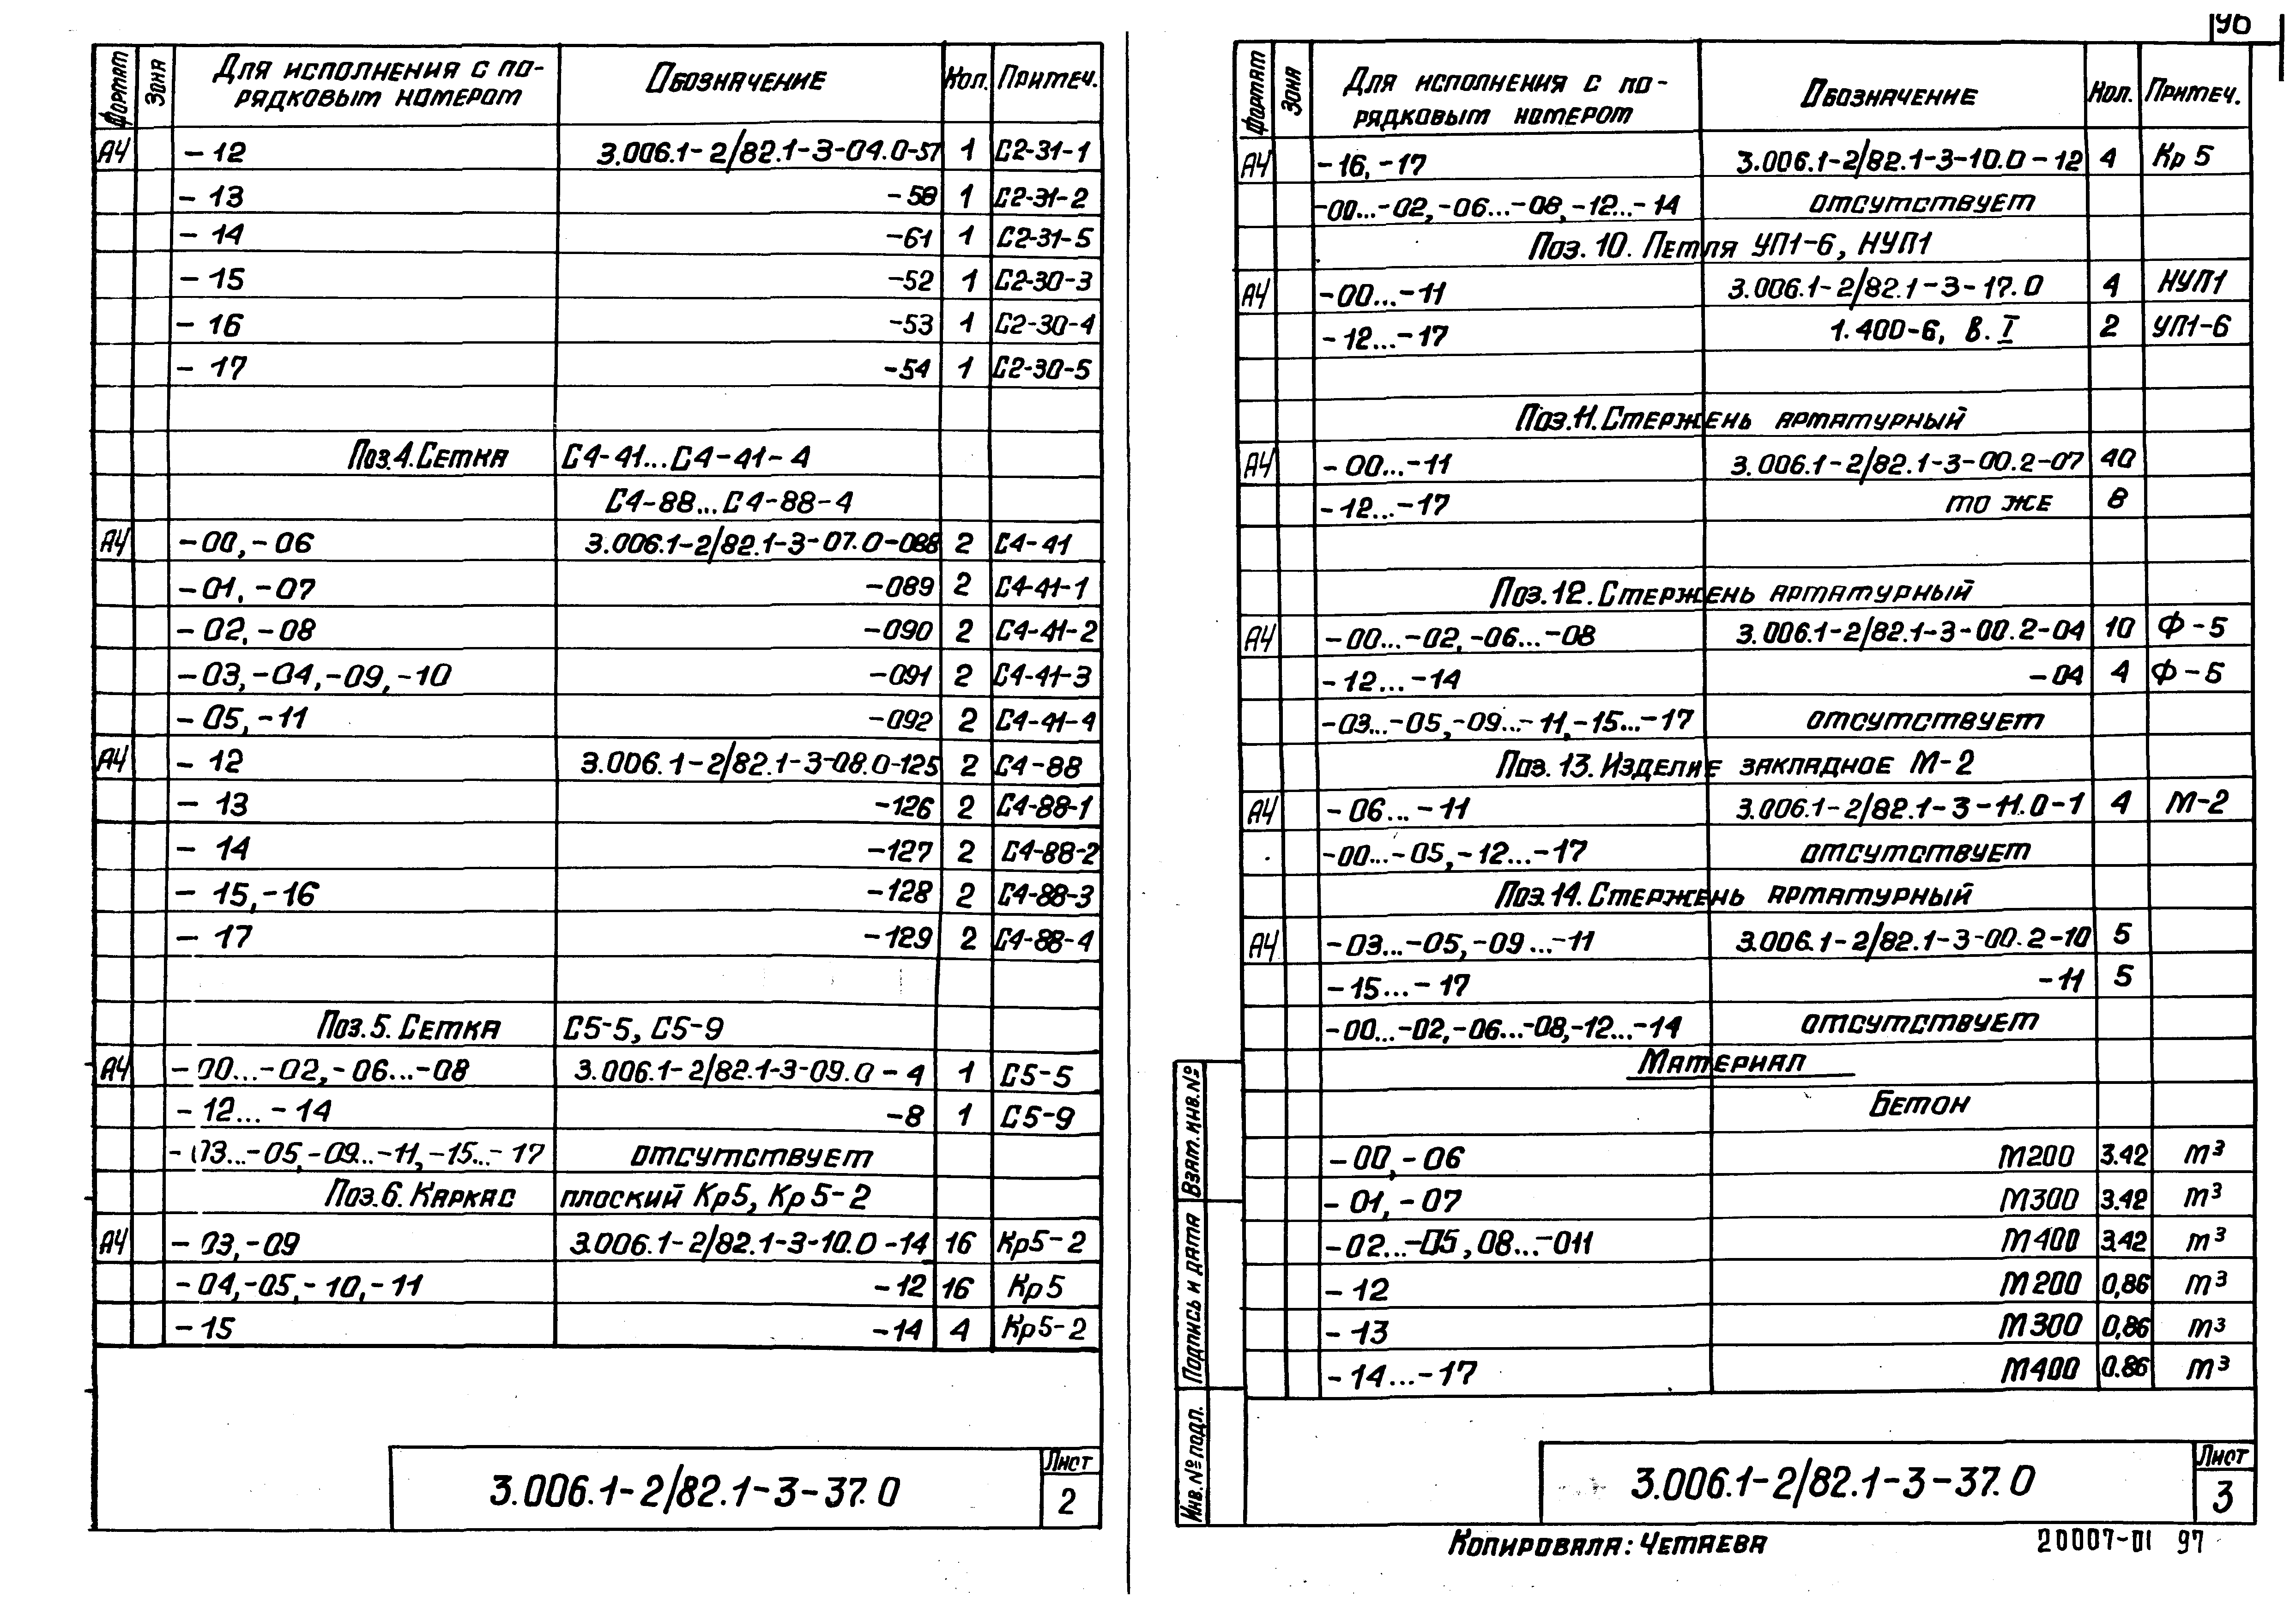 96
Формат Зона Для исполнения с по- Обозначение Кол. Примеч.
рядковым номером
А4 - 12 3.006.1-2/82.1-3-04.0-57 1 С2-31-1
- 13 -58 1 С2-31-2
- 14 -61 1 С2-31-5
- 15 -52 1 С2-30-3
- 16 -53 1 С2-30-4
- 17 -54 1 С2-30-5
Поз.4.Сетка С4-41...С4-41-4
С4-88...С4-88-4
А4 -00,-06 3.006.1-2/82.1-3-07.0-088 2 С4-41
-01,-07 -089 2 С4-41-1
-02,-08 -090 2 С4-41-2
-03,-04,-09,-10 -091 2 С4-41-3
-05,-11 -092 2 С4-41-4
А4 - 12 3.006.1-2/82.1-3-08.0-125 2 С4-88
- 13 -126 2 С4-88-1
- 14 -127 2 С4-88-2
- 15,-16 -128 2 С4-88-3
- 17 -129 2 С4-88-4
Поз.5.Сетка С5-5, С5-9
А4 -00...-02,-06...-08 3.006.1-2/82.1-3-09.0-4 1 С5-5
-12...-14 -8 1 С5-9
-03...-05,-09...-11,-15...-17 отсутствует
Поз.6.Каркас плоский Кр5, Кр5-2
А4 -03,-09 3.006.1-2/82.1-3-10.0-14 16 Кр5-2
-04,-05,-10,-11 -12 16 Кр5
-15 -14 4 Кр5-2
3.006.1-2/82.1-3-37.0
Лист
2
Формат Зона Для исполнения с по- Обозначение Кол. Примеч.
рядковым номером
А4 -16,-17 3.006.1-2/82.1-3-10.0-12 4 Кр5
-00...-02,-06...-08,-12...-14 отсутствует
Поз.10. Петля УП1-6, НУП1
А4 -00...-11 3.006.1-2/82.1-3-17.0 4 НУП1
-12...-17 1.400-6, В. I 2 УП1-6
Поз.11.Стержень арматурный
А4 -00...-11 3.006.1-2/82.1-3-00.2-07 40
-12...-17 то же 8
Поз.12.Стержень арматурный
А4 -00...-02,-06...-08 3.006.1-2/82.1-3-00.2-04 10 Ф-5
-12...-14 -04 4 Ф-5
-03...-05,-09...-11,-15...-17 отсутствует
Поз.13.Изделие закладное М-2
А4 -06...-11 3.006.1-2/82.1-3-11.0-1 4 М-2
-00...-05,-12...-17 отсутствует
Поз.14.Стержень арматурный
А4 -03...-05,-09...-11 3.006.1-2/82.1-3-00.2-10 5
-15...-17 -11 5
-00...-02,-06...-08,-12...-14 отсутствует
Материал
Бетон
-00,-06 М200 3.42 м³
-01,-07 М300 3.42 м³
-02...-05,08...-011 М400 3.42 м³
-12 М200 0,86 м³
-13 М300 0,86 м³
-14...-17 М400 0.86 м³
Взам.инв.№
Подпись и дата
Инв.№подл.
3.006.1-2/82.1-3-37.0
Лист
3
Копировала: Четаева 20007-01 97